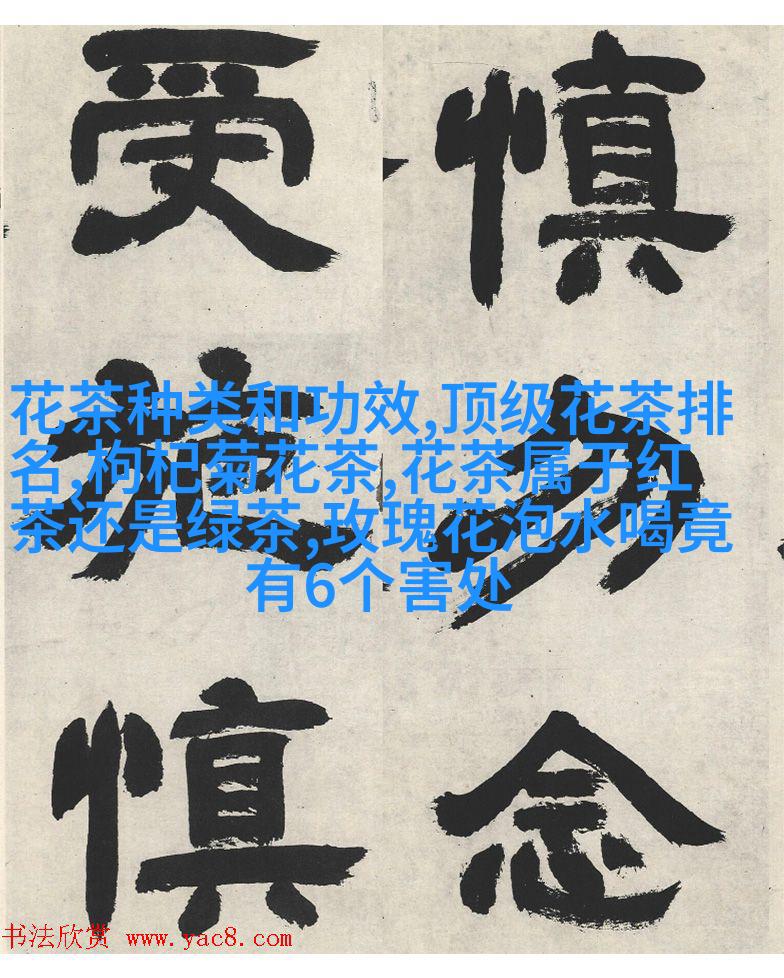 慎勿念
受施慎
花茶种类和功效,顶级花茶排
名,枸杞菊花茶,花茶属于红
茶还是绿茶,玫瑰花泡水喝竟
有6个害处
书法欣赏 www.yac8.com